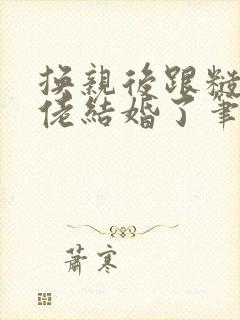 換親後跟糙
佬結婚了筆
蕭寒